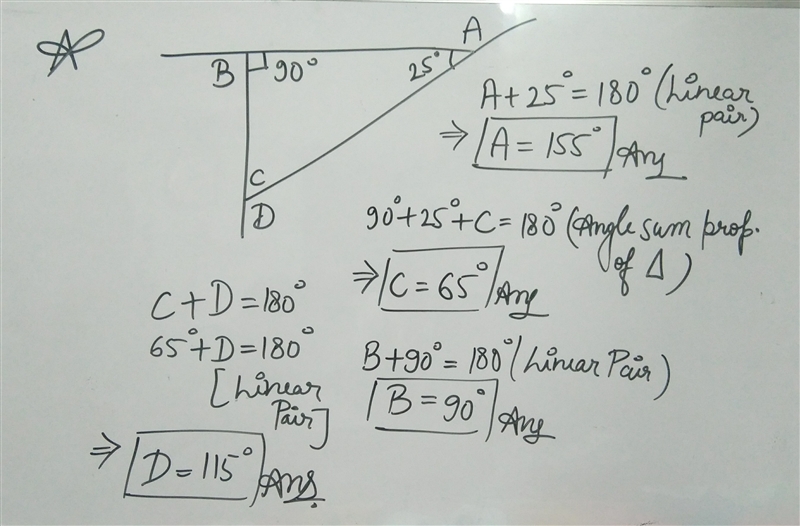 A
B 90° 25°
C
D
A + 25° = 180° (Linear
pair)
⇒ A = 155° Ans
90° + 25° + C = 180° (Angle sum prop.
of Δ)
⇒ C = 65° Ans
C + D = 180°
65° + D = 180°
[Linear
Pair]
⇒ D = 115° Ans.
B + 90° = 180° (Linear Pair)
B = 90° Ans